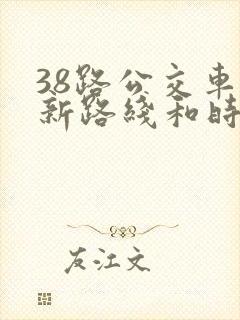 38路公交車
新路綫和時
友江文